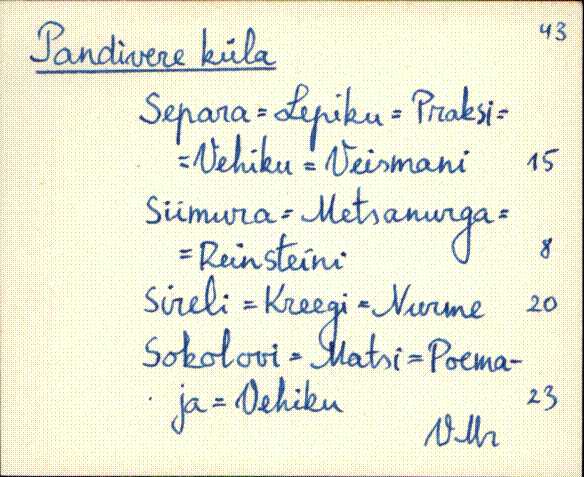 43
Pandivere küla
Separa = Lepiku = Praksi =
= Vehiku = Veismani 15
Siimura = Metsanurga =
= Reinsteini 8
Sireli = Kreegi = Nurme 20
Sokolovi = Matsi = Poema-
ja = Vehiku 23